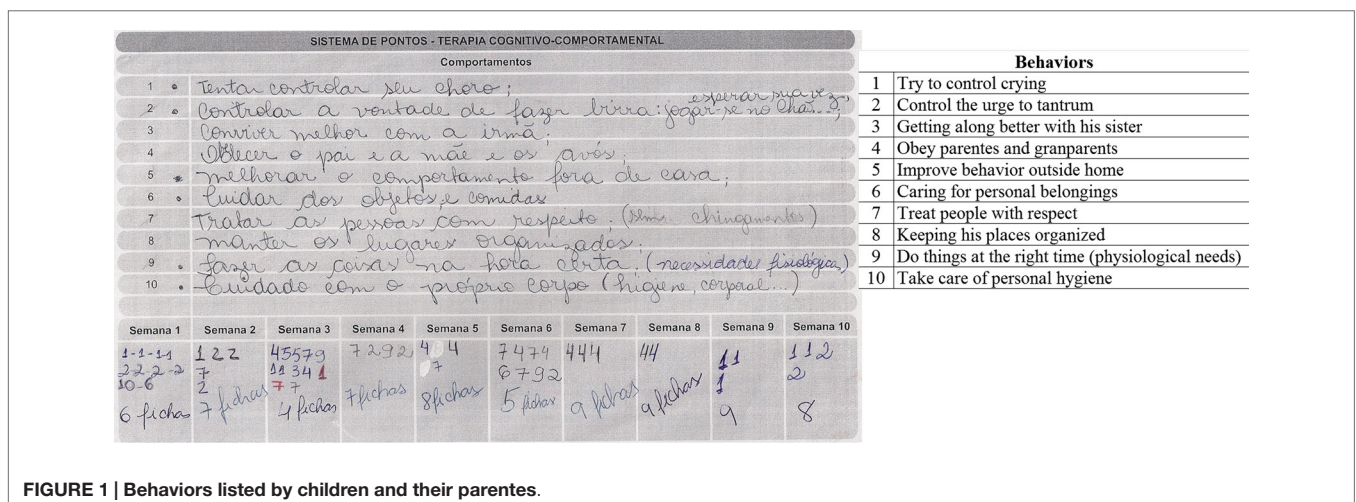 SISTEMA DE PONTOS - TERAPIA COGNITIVO-COMPORTAMENTAL
Comportamentos
1 • Tentar controlar seu choro;
esperar sua vez,
2 • Controlar a vontade de fazer birra: jogar-se no chão...;
3 Conviver melhor com a irmã;
4 Obedecer o pai e a mãe e os avós;
5 • melhorar o comportamento fora de casa;
6 • Cuidar dos objetos, e comidas
7 Tratar as pessoas com respeito. (sem chingamentos)
8 manter os lugares organizados.
9 • fazer as coisas na hora certa. (necessidades fisiológicas)
10 • Cuidado com o próprio corpo (higiene, corporal...)
Semana 1 Semana 2 Semana 3 Semana 4 Semana 5 Semana 6 Semana 7 Semana 8 Semana 9 Semana 10
1-1-1-1 122 45579 7292 4 4 7474 444 44 11 112
2-2-2-2 7 11341 7 6792 1 2
10-6 2 77
6 fichas 7 fichas 4 fichas 7 fichas 8 fichas 5 fichas 9 fichas 9 fichas 9 8
Behaviors
1 Try to control crying
2 Control the urge to tantrum
3 Getting along better with his sister
4 Obey parentes and granparents
5 Improve behavior outside home
6 Caring for personal belongings
7 Treat people with respect
8 Keeping his places organized
9 Do things at the right time (physiological needs)
10 Take care of personal hygiene
FIGURE 1 | Behaviors listed by children and their parentes.